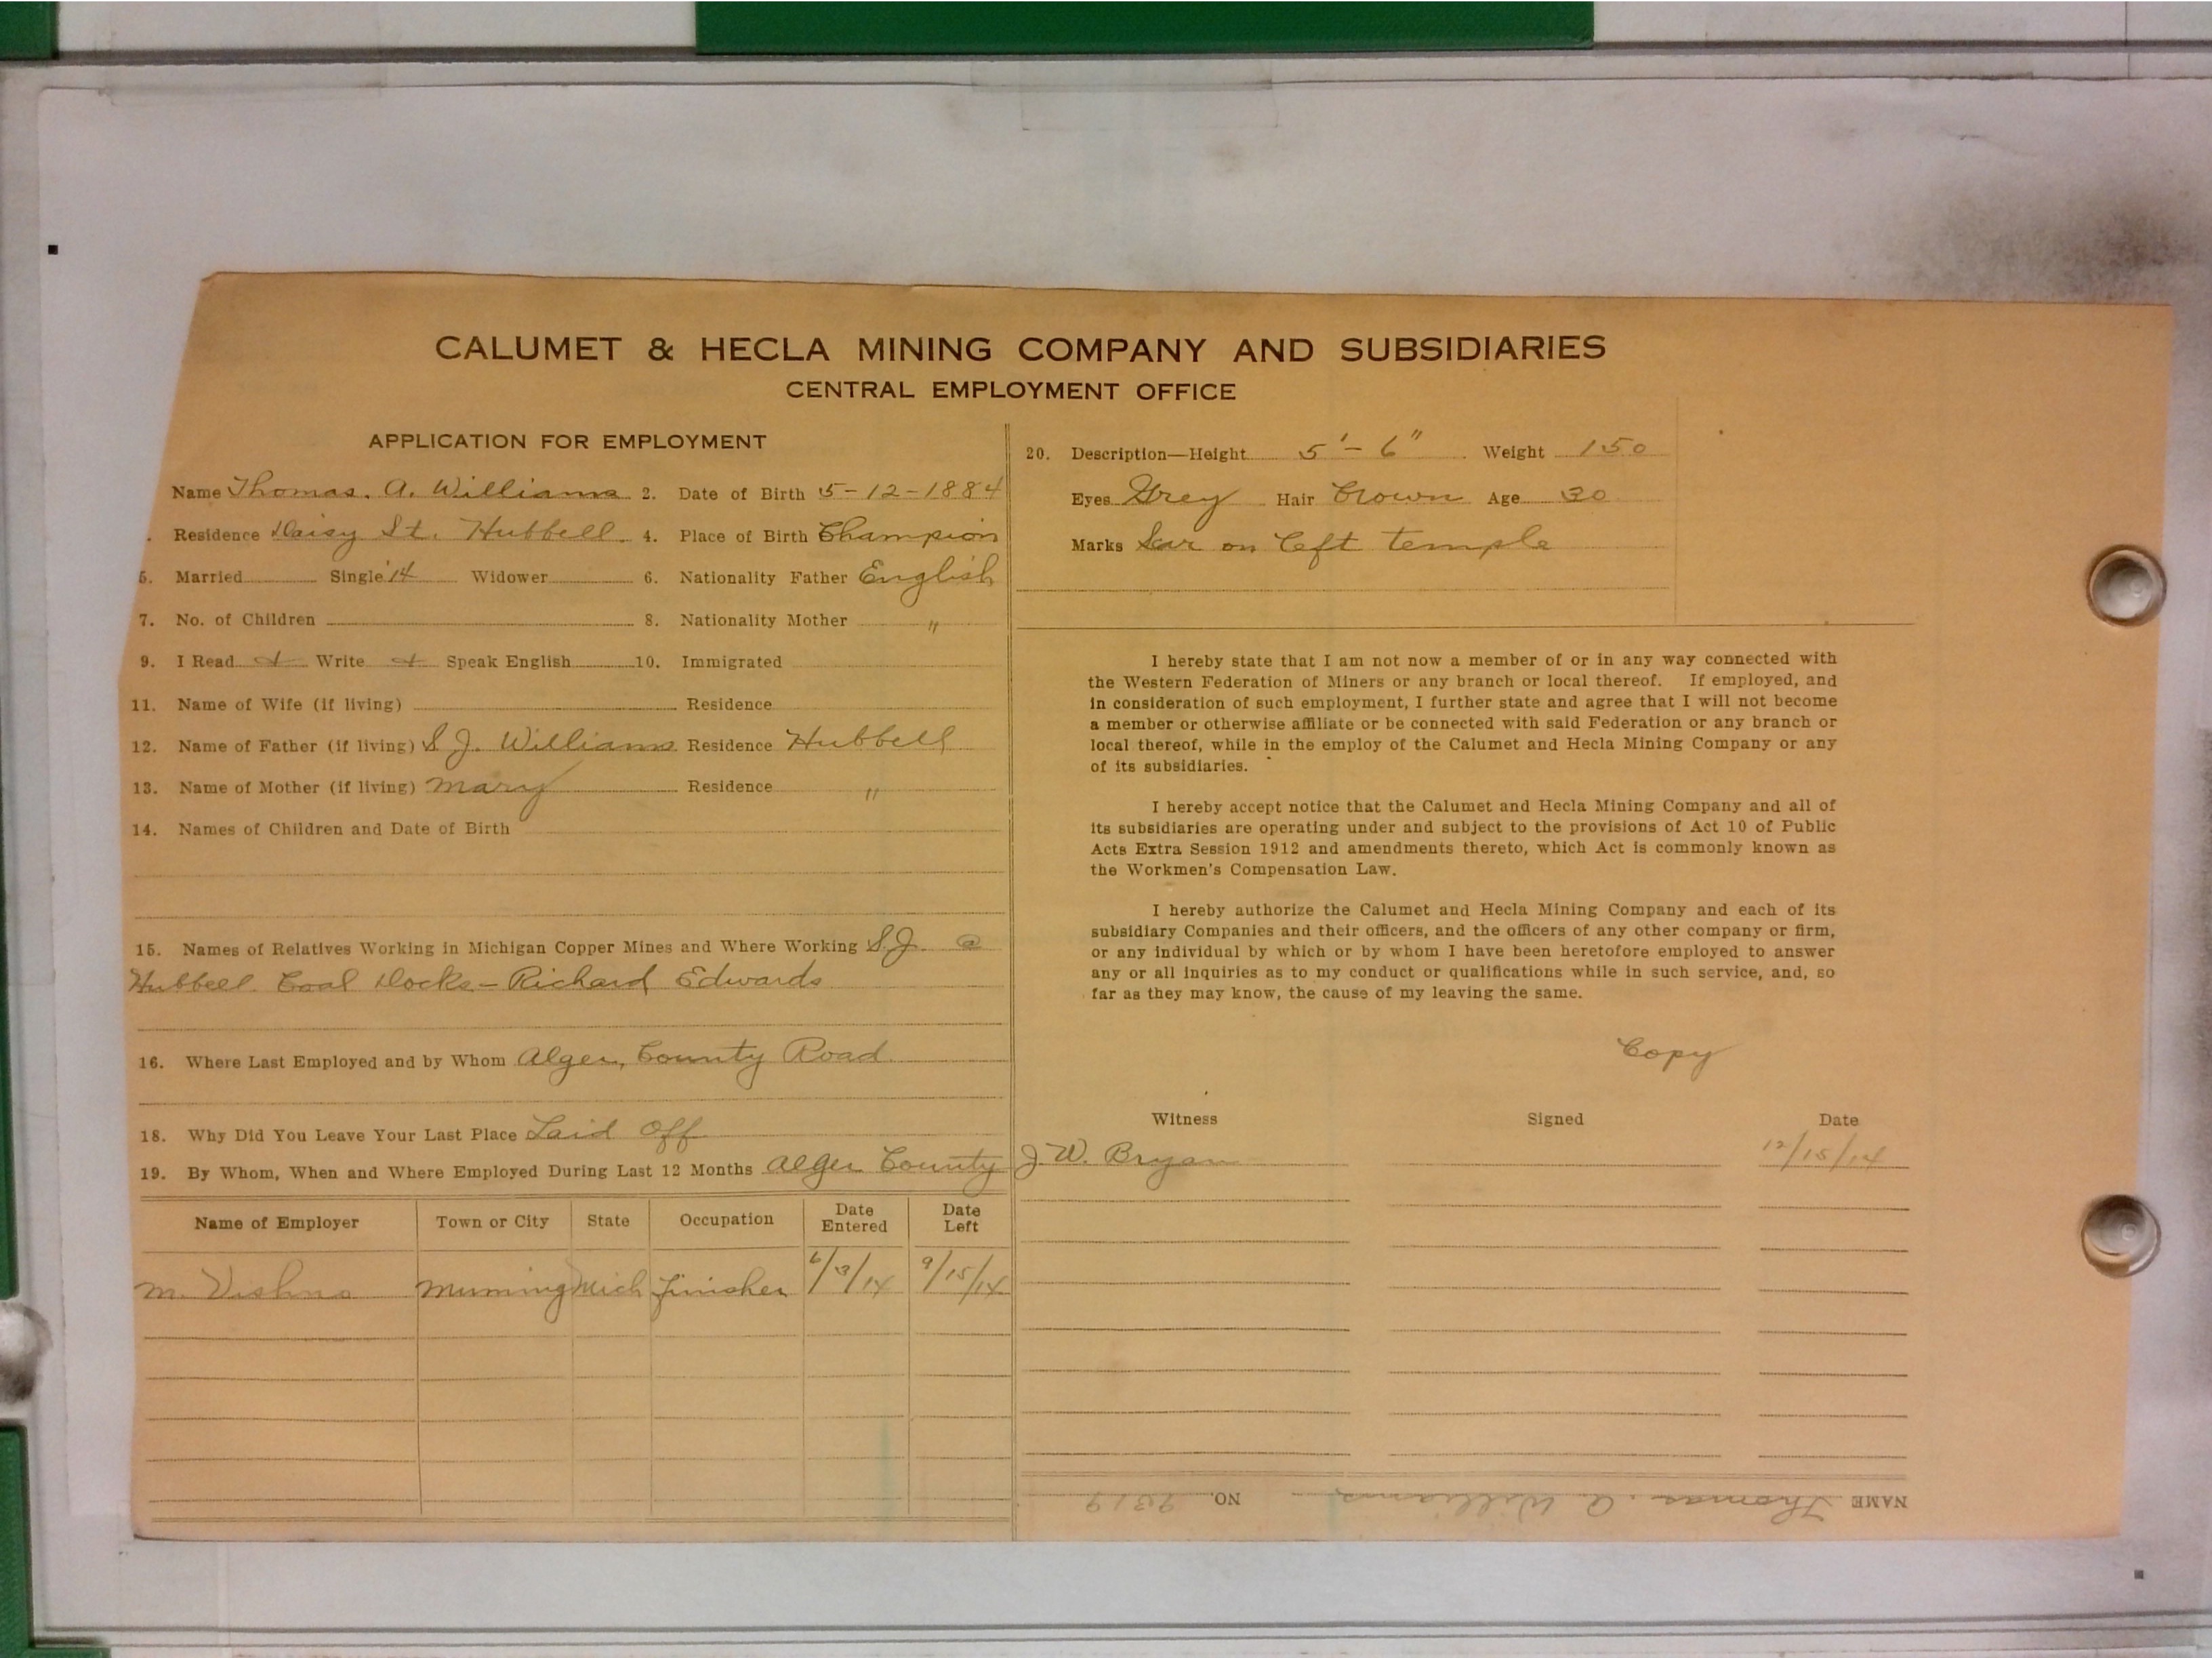 CALUMET & HECLA MINING COMPANY AND SUBSIDIARIES
CENTRAL EMPLOYMENT OFFICE
APPLICATION FOR EMPLOYMENT
Name Thomas. A. Williams 2. Date of Birth 5-12-1884
Residence Daisy St. Hubbell. 4. Place of Birth Champion
5. Married Single Widower 6. Nationality Father English
7. No. of Children 8. Nationality Mother "
9. I Read Write Speak English 10. Immigrated
11. Name of Wife (if living) Residence
12. Name of Father (if living) S J. Williams Residence Hubbell
13. Name of Mother (if living) Mary Residence "
14. Names of Children and Date of Birth
15. Names of Relatives Working in Michigan Copper Mines and Where Working S.J. @
Hubbell Coal Docks - Richard Edwards
16. Where Last Employed and by Whom Alger, County Road
18. Why Did You Leave Your Last Place Laid Off
19. By Whom, When and Where Employed During Last 12 Months Alger County
Name of Employer Town or City State Occupation Date Entered Date Left
M. Munising Mich Finisher 6/3/14 9/15/14
20. Description—Height 5'-6" Weight 150
Eyes Grey Hair Brown Age 30
Marks Scar on left temple
I hereby state that I am not now a member of or in any way connected with
the Western Federation of Miners or any branch or local thereof. If employed, and
in consideration of such employment, I further state and agree that I will not become
a member or otherwise affiliate or be connected with said Federation or any branch or
local thereof, while in the employ of the Calumet and Hecla Mining Company or any
of its subsidiaries.
I hereby accept notice that the Calumet and Hecla Mining Company and all of
its subsidiaries are operating under and subject to the provisions of Act 10 of Public
Acts Extra Session 1912 and amendments thereto, which Act is commonly known as
the Workmen's Compensation Law.
I hereby authorize the Calumet and Hecla Mining Company and each of its
subsidiary Companies and their officers, and the officers of any other company or firm,
or any individual by which or by whom I have been heretofore employed to answer
any or all inquiries as to my conduct or qualifications while in such service, and, so
far as they may know, the cause of my leaving the same.
Copy
Witness Signed Date
J. W. Bryan 12/15/14
NAME Thomas. A. Williams NO. 9319